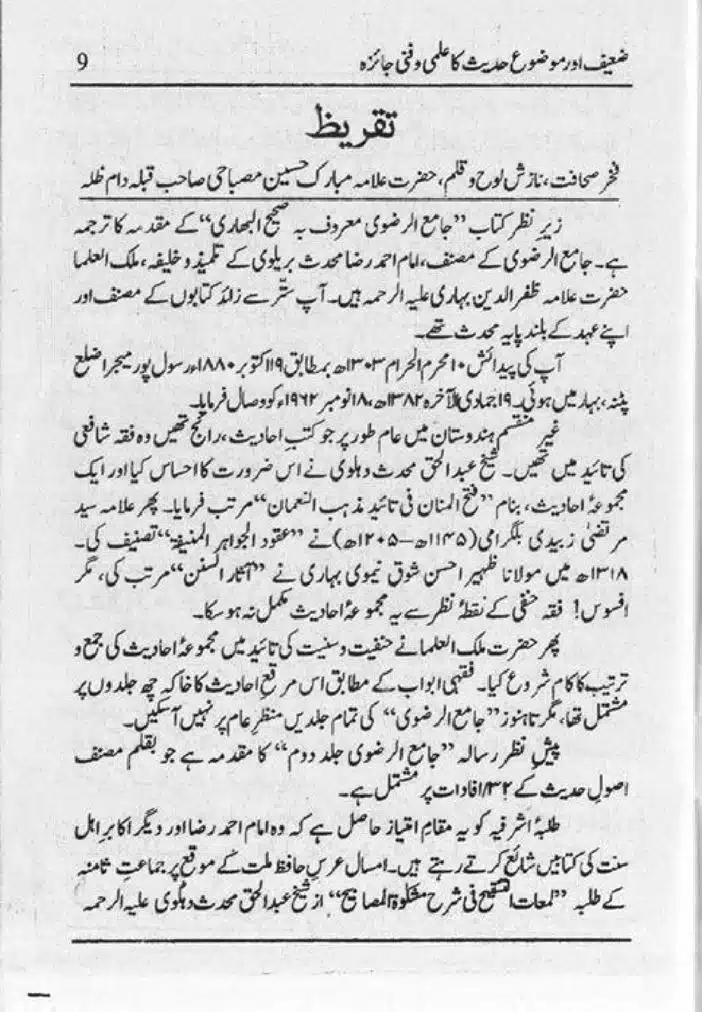 ضعیف اور موضوع حدیث کا علمی و فنی جائزہ 9
تقریظ
فخر صحافت، نازش لوح و قلم، حضرت علامہ مبارک حسین مصباحی صاحب قبلہ دام ظلہ
زیر نظر کتاب ”جامع الرضوی معروف بہ صحیح البہاری“ کے مقدمہ کا ترجمہ
ہے۔ جامع الرضوی کے مصنف، امام احمد رضا محدث بریلوی کے تلمیذ و خلیفہ، ملک العلما
حضرت علامہ ظفر الدین بہاری علیہ الرحمہ ہیں۔ آپ ستّر سے زائد کتابوں کے مصنف اور
اپنے عہد کے بلند پایہ محدث تھے۔
آپ کی پیدائش ۱۰ محرم الحرام ۱۳۰۳ھ بمطابق ۱۹ اکتوبر ۱۸۸۰ء رسول پور میجرا ضلع
پٹنہ، بہار میں ہوئی۔ ۱۹ جمادی الآخرہ ۱۳۸۲ھ، ۱۸ نومبر ۱۹۶۲ء کو وصال فرمایا۔
غیر منقسم ہندوستان میں عام طور پر جو کتبِ احادیث، رائج تھیں وہ فقہ شافعی
کی تائید میں تھیں۔ شیخ عبد الحق محدث دہلوی نے اس ضرورت کا احساس کیا اور ایک
مجموعۂ احادیث، بنام ”فتح المنان فی تائید مذہب النعمان“ مرتب فرمایا۔ پھر علامہ سید
مرتضیٰ زبیدی بلگرامی (۱۱۴۵ھ–۱۲۰۵ھ) نے ”عقود الجواہر المنیفہ“ تصنیف کی۔
۱۳۱۸ھ میں مولانا ظہیر احسن شوق نیموی بہاری نے ”آثار السنن“ مرتب کی، مگر
افسوس! فقہ حنفی کے نقطۂ نظر سے یہ مجموعۂ احادیث مکمل نہ ہو سکا۔
پھر حضرت ملک العلما نے حنفیت و سنیت کی تائید میں مجموعۂ احادیث کی جمع و
ترتیب کا کام شروع کیا۔ فقہی ابواب کے مطابق اس مرقعِ احادیث کا خاکہ چھ جلدوں پر
مشتمل تھا، مگر تا ہنوز ”جامع الرضوی“ کی تمام جلدیں منظرِ عام پر نہیں آ سکیں۔
پیش نظر رسالہ ”جامع الرضوی جلد دوم“ کا مقدمہ ہے جو بقلم مصنف
اصولِ حدیث کے ۳۲/ افادات پر مشتمل ہے۔
طلبۂ اشرفیہ کو یہ مقامِ امتیاز حاصل ہے کہ وہ امام احمد رضا اور دیگر اکابر اہل
سنت کی کتابیں شائع کرتے رہتے ہیں۔ امسال عرسِ حافظ ملت کے موقع پر جماعتِ ثامنہ
کے طلبہ ”لمعات التنقیح فی شرح مشکوٰۃ المصابیح“ از شیخ عبد الحق محدث دہلوی علیہ الرحمہ